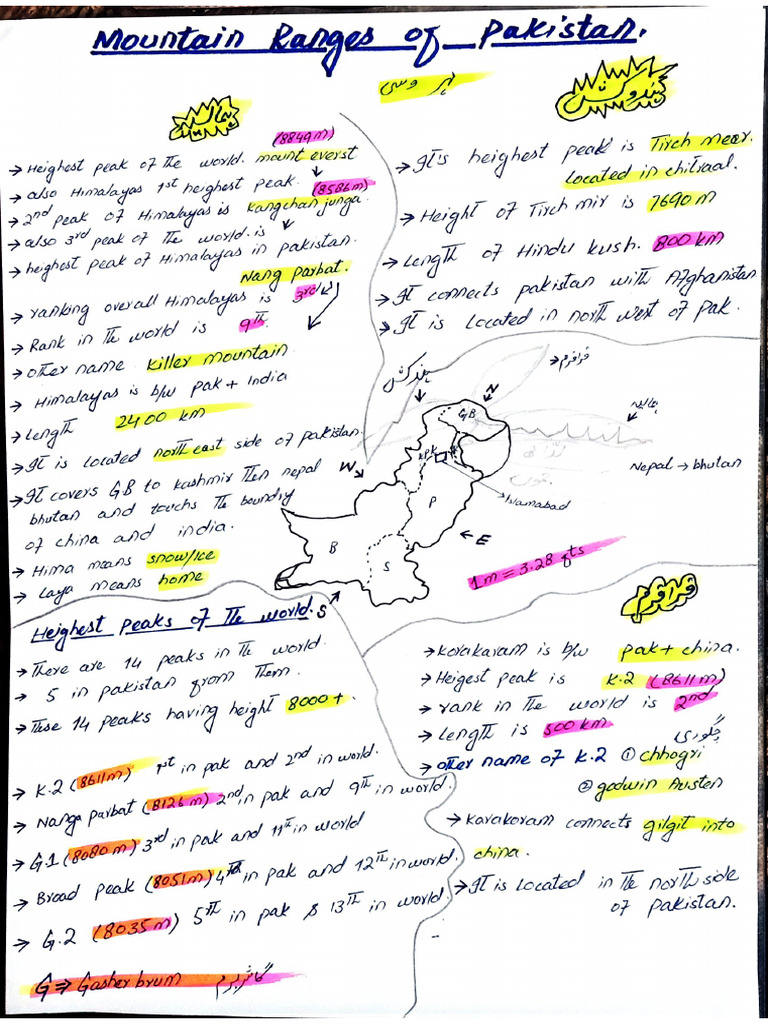 Mountain Ranges of Pakistan.
ہمالیہ
→ Heighest peak of the world. mount everst (8849m)
→ also Himalayas 1st heighest peak.
→ 2nd peak of Himalayas is kangchanjunga. (8586m)
→ also 3rd peak of the world.is
→ heighest peak of Himalayas in pakistan.
Nang parbat.
→ ranking overall Himalayas is 3rd
→ Rank in the world is 9th.
→ other name killer mountain
→ Himalayas is b/w pak + India
→ Length 2400 km
→ It is located north east side of pakistan.
→ It covers GB to kashmir then nepal
bhutan and touchs the boundry
of china and india.
→ Hima means snow/ice
→ Laya means home
ہندوکش
→ It's heighest peak is Tirch meer.
located in chitraal.
→ Height of Tirch mir is 7690 m
→ Length of Hindu kush. 800 km
→ It connects pakistan with Afghanistan
→ It is located in north west of pak.
ہندوکش
→ قراقرم
ہمالیہ
N
GB
KPK
W
Nepal → bhutan
Islamabad
P
B
S
← E
S
1m = 3.28 fts
Heighest peaks of the world.
→ There are 14 peaks in the world.
→ 5 in pakistan from them.
→ These 14 peaks having height 8000+
→ K.2 (8611m) 1st in pak and 2nd in world.
→ Nanga parbat (8126m) 2nd in pak and 9th in world.
→ G.1 (8080m) 3rd in pak and 11th in world
→ Broad peak (8051m) 4th in pak and 12th in world.
→ G.2 (8035m) 5th in pak & 13th in world.
G ⇒ Gasherbrum گاشربرم
قراقرم
→ korakaram is b/w pak + china.
→ Heigest peak is K.2 (8611m)
→ rank in the world is 2nd
→ Length is 500 km
چگوری
→ other name of K.2 ① chhogri
② godwin Austen
→ karakoram connects gilgit into
china.
→ It is located in the north side
of pakistan.